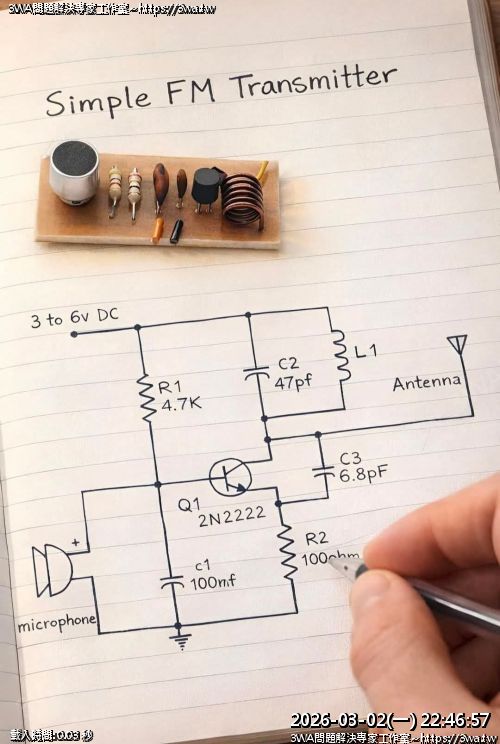 3WA問題解決專家工作室~https://3wa.tw
Simple FM Transmitter
3 to 6v DC
R1
4.7K
C2
47pf
L1
Antenna
C3
6.8pF
Q1
2N2222
+
c1
100nf
R2
100ohm
microphone
2026-03-02(一) 22:46:57
載入時間:0.03 秒
3WA問題解決專家工作室~https://3wa.tw